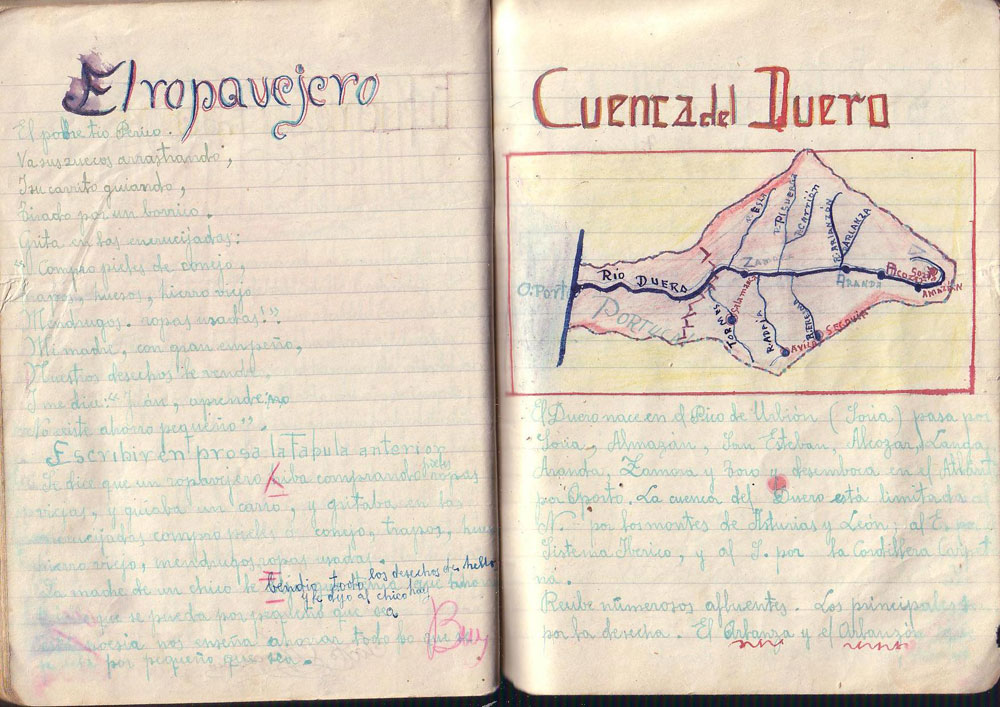 El ropavejero
El pobre tio Perico.
Va sus zuecos arrastrando,
I su carrito guiando,
Tirado por un borrico.
Grita en las encucijadas:
"Compro pieles de conejo,
trapos, huesos, hierro viejo
Mendrugos. ropas usadas!"
Mi madre, con gran empeño,
Nuestros desechos le vende,
I me dice: " Juan, aprende
este ahorro pequeño".
Escribir en prosa la fabula anterior
Se dice que un ropavejero iba comprando pieles ropas
viejas, y guiaba un carro, y gritaba en las
encucijadas compro pieles conejo, trapos,
hierro viejo, mendrugos ropas usadas.
La madre de un chico le bendio todo los desechos de
y le dijo al chico hay
que se pueda por pequeño que sea
poesia nos enseña ahorrar todo lo que
por pequeño que sea.
Bien
Cuenca del Duero
RIO DUERO
O. Porto
PORTUGAL
R. ESLA
R. PISUERGA
R. Carrión
R. ARLANZÓN
R. ARLANZA
ZAMORA
ARANDA
ALCOZAR
SORIA
ALMAZÁN
TORMES
Salamanca
R. ADAJA
R. ERESMA
AVILA
SEGOVIA
El Duero nace en el Pico de Urbión (Soria) pasa por
Soria, Almazan, San Esteban, Alcozar, Langa,
Aranda, Zamora y Toro y desemboca en el Atlant
por Oporto. La cuenca del Duero está limitada al
N. por los montes de Asturias y León, al E. por
Sistema Iberico, y al S. por la Cordillera Carpeta
na.
Recibe numerosos afluentes. Los principales
por la derecha. El Arlanza y el Arlanzón que